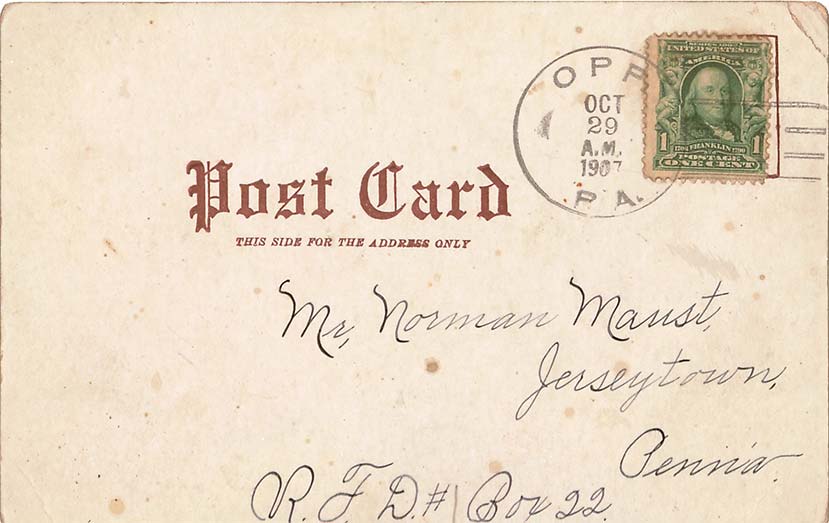 OPP
OCT
29
A.M.
1907
PA.
SERIES 1902
UNITED STATES OF
AMERICA
1 1706 FRANKLIN 1790 1
POSTAGE
ONE CENT
Post Card
THIS SIDE FOR THE ADDRESS ONLY
Mr, Norman Maust,
Jerseytown,
Penn'a.
R. F. D. # 1 Box 22.